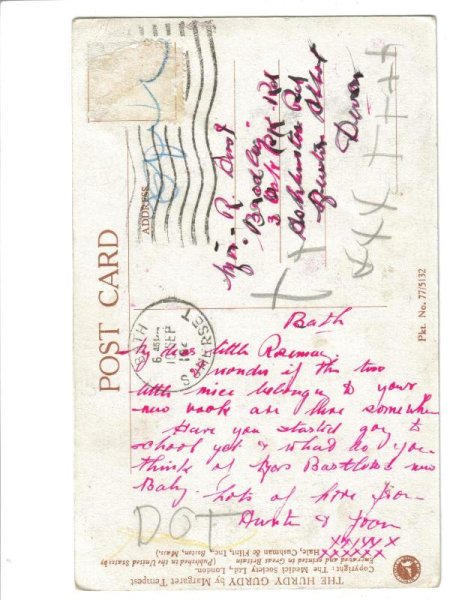 POST CARD
ADDRESS
Bradley
3 Oak Pk Rd
Newton Abbot
Devon
BATH
6 45 PM
SEP
SOMERSET
Pkt. No. 77/5132
Bath
My dear little Rosemary
wonder if the two
little mice belonging to your
new book are there somewhere
Have you started going to
school yet & what do you
think of Mrs new
Baby. Lots of love from
Auntie & Joan
XXXXX
XXXXXX
DOT
THE HURDY GURDY by Margaret Tempest
Copyright: The Medici Society Ltd., London.
Engraved and printed in Great Britain
(Published in the United States by
Hale, Cushman & Flint, Inc., Boston, Mass.)